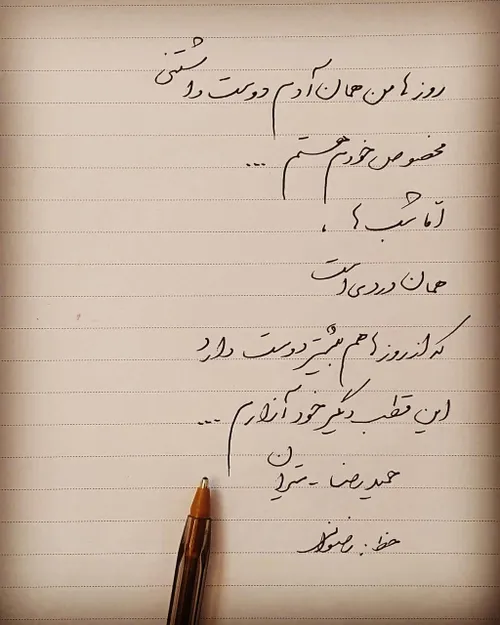 روزها من همان آدم دوست داشتنی
مخصوص خودم هستم ...
اما شب ها ،
همان دردی است
که از روزها هم بیشتر دوست دارد
این قطب دیگر خود آزارم ...
حمیدرضا -
خط :